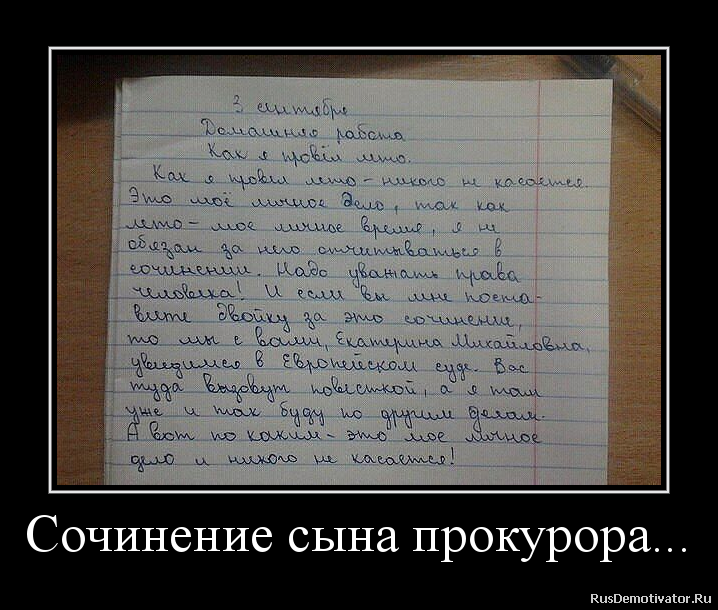 3 сентября
Домашняя работа
Как я провёл лето.
Как я провёл лето - никого не касается.
Это моё личное дело, так как
лето - мое личное время, я не
обязан за него отчитываться в
сочинении. Надо уважать права
человека! И если вы мне поста-
вите двойку за это сочинение,
то мы с вами, Екатерина Михайловна,
увидимся в Европейском суде. Вас
туда вызовут повесткой, а я там
уже и так буду по другим делам.
А вот по каким - это мое личное
дело и никого не касается!
Сочинение сына прокурора...
RusDemotivator.Ru